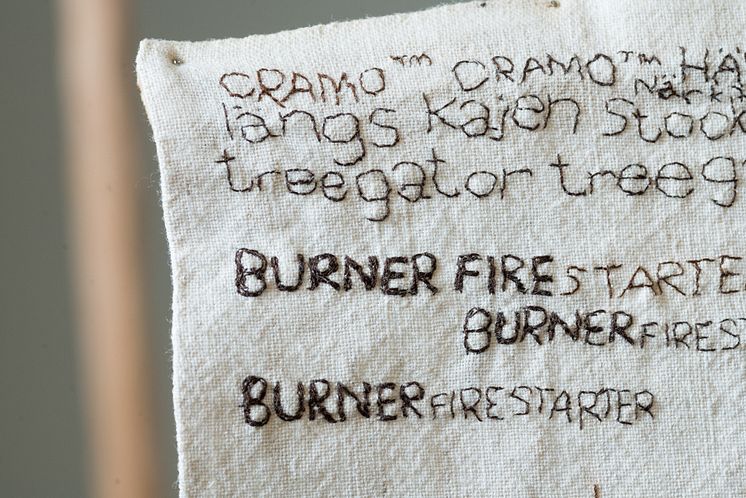 CRAMO™ CRAMO™ HÄ
längs kajen Stoc
treegator treeg
BURNER FIRESTARTE
BURNERFIRES
BURNERFIRESTARTER